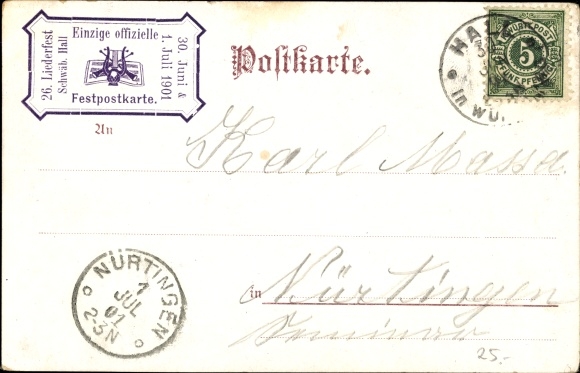 26. Liederfest
Schwäb. Hall
Einzige offizielle
Festpostkarte.
30. Juni &
1. Juli 1901
Postkarte.
HALL
in WÜ
K. WÜRTT. POST
5
FÜNF PFENNIG
An
Karl Massa
NÜRTINGEN
1
JUL
01
2-3N
in Nürtingen
Seminar
25.-